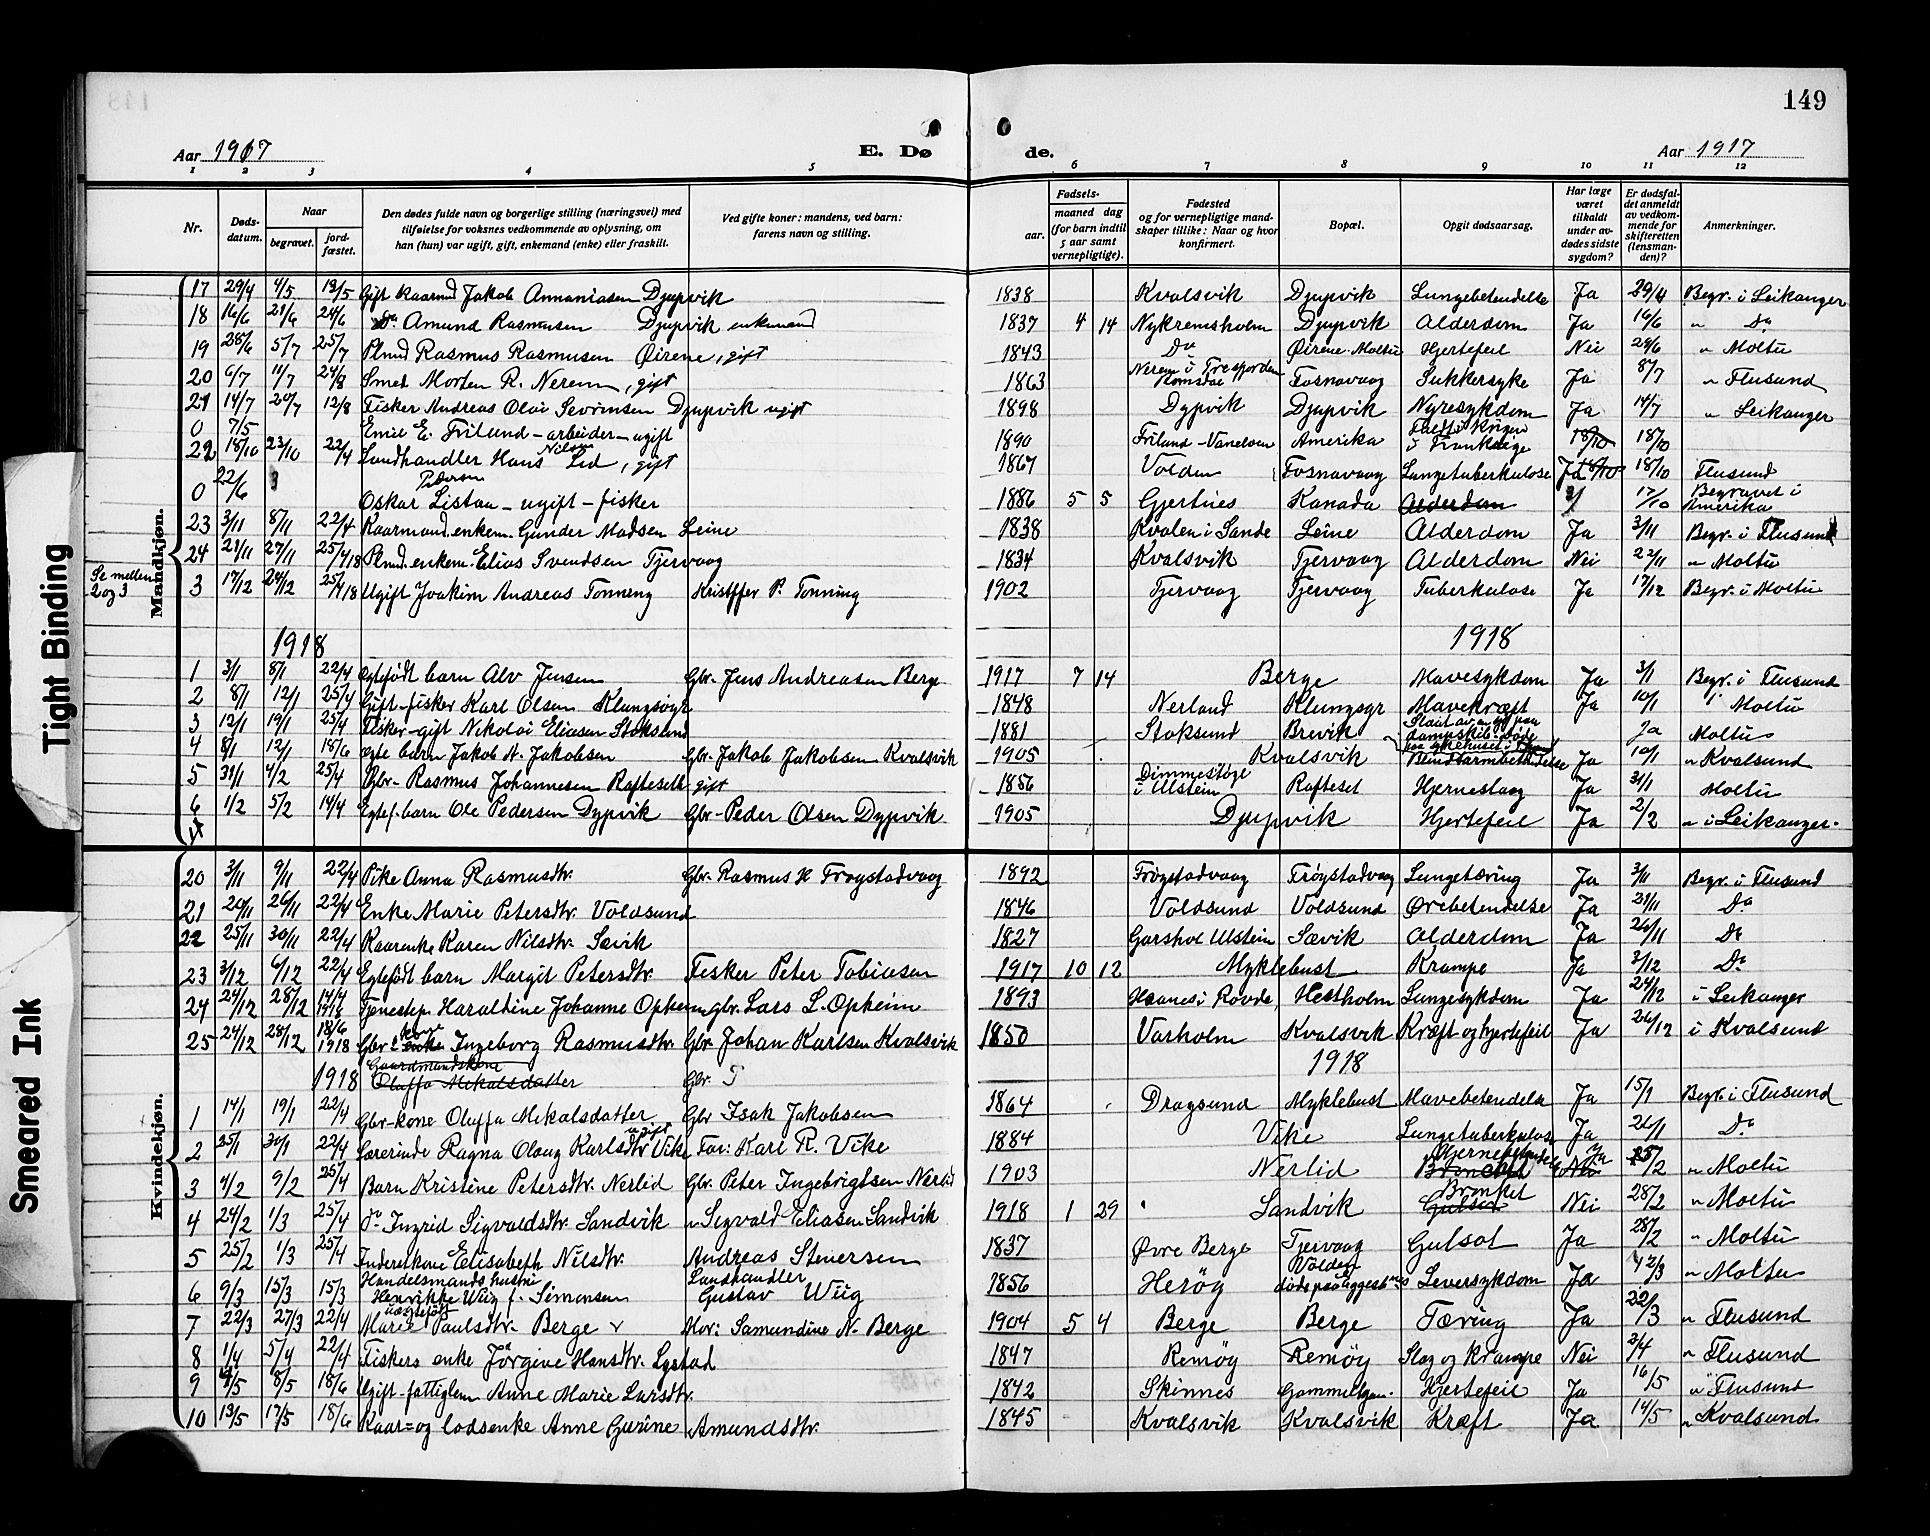 149
Aar 1917
E. Dø
de.
Aar 1917
1 2 3 4 5 6 7 8 9 10 11 12
Nr.
Døds-
datum.
Naar
begravet.
jord-
fæstet.
Den dødes fulde navn og borgerlige stilling (næringsvei) med
tilføielse for voksnes vedkommende av oplysning, om
han (hun) var ugift, gift, enkemand (enke) eller fraskilt.
Ved gifte koner: mandens, ved barn:
farens navn og stilling.
Fødsels-
aar.
maaned dag
(for barn indtil
5 aar samt
vernepligtige).
Fødested
og for vernepligtige mand-
skaper tillike: Naar og hvor
konfirmert.
Bopæl.
Opgit dødsaarsag.
Har læge
været
tilkaldt
under av-
dødes sidste
sygdom?
Er dødsfal-
det anmeldt
av vedkom-
mende for
skifteretten
(lensman-
den)?
Anmerkninger.
Mandkjøn.
17 29/4 4/5 13/5 Gift kaarmd Jakob Annaniasen Djupvik 1838 Kvalsvik Djupvik Lungebetendelse Ja 29/4 Begr. i Leikanger
18 16/6 21/6 24/6 Do Amund Rasmusen Djupvik enkemand 1837 4 14 Nykremsholm Djupvik Alderdom Ja 16/6 " Do
19 28/6 5/7 25/7 Plmd Rasmus Rasmusen Øirene, gift 1843 Do Øirene-Moltu Hjertefeil Nei 28/6 " Moltu
20 6/7 11/7 24/8 Smed Morten R. Nerem, gift 1863 Nerem i Tresfjorden Romsdal Fosnavaag Sukkersyke Ja 8/7 " Flusund
21 14/7 20/7 12/8 Fisker Andreas Olai Sevrinsen Djupvik ugift 1898 Dypvik Djupvik Nyresykdom Ja 14/7 " Leikanger
0 7/5 Emil E. Frilund - arbeider - ugift 1890 Friland - Vanelven Amerika Faldt i krigen i Frankrige 18/10 18/10
22 18/10 23/10 22/4 Landhandler Hans Nilsen Lid, gift 1867 Volden Fosnavaag Lungetuberkulose Ja 18/10 18/10 Flusund
0 22/6 3 Oskar Pedersen Listau - ugift - fisker 1886 5 5 Gjertnes Kanada Alderdom 17/10 Begravet i Amerika
23 3/11 8/11 22/4 Kaarmand, enkem. Gunder Madsen Leine 1838 Kvalen i Sande Leine Alderdom Ja 3/11 Begr. i Flusund
24 21/11 27/11 25/4 18 Plmd. enkem. Elias Svendsen Tjervaag 1834 Kvalsvik Tjervaag Alderdom Nei 22/11 " Moltu
Se mellem
2 og 3
3 17/12 24/12 25/4 18 Ugift Joakim Andreas Tonneng Kristffer P. Tonning 1902 Tjervaag Tjervaag Tuberkulose Ja 17/12 Begr. i Moltu
1918 1918
1 3/1 8/1 22/4 Egtefødt barn Alv Jensen Gbr. Jens Andreasen Berge 1917 7 14 Berge Mavesykdom Ja 3/1 Begr. i Flusund
2 8/1 12/1 25/4 Gift-fisker Karl Olsen Klungsøyr 1848 Nerland Klungsyr Mavekræft Ja 10/1 " Moltu
3 12/1 19/1 25/4 Fisker-gift Nikolai Eliasen Stoksund 1881 Stoksund Brevik Ja Moltu
4 8/1 12/1 18/6 egte barn Jakob A. Jakobsen Gbr. Jakob Jakobsen Kvalsvik 1905 Kvalsvik Blindtarmbetendelse Ja 10/1 " Kvalsund
5 31/1 4/2 25/4 Gbr- Rasmus Johannesen Rafteseth gift 1856 Dimmestøge i Ulstein Rafteset Hjerneslag Ja 31/1 Moltu
6 1/2 5/2 14/4 Egtef. barn Ole Pedersen Dypvik Gbr- Peder Olsen Dypvik 1905 Djupvik Hjertefeil Ja 2/2 " i Leikanger.
Kvindekjøn.
20 3/11 9/11 22/4 Pike Anna Rasmusdtr. Gbr. Rasmus H Frøystadvaag 1892 Frøystadvaag Frøystadvaag Lungetæring Ja 3/11 Begr. i Flusund
21 20/11 26/11 22/4 Enke Marie Petersdtr. Voldsund 1846 Voldsund Voldsund Ørebetendelse Ja 21/11 Do
22 25/11 30/11 22/4 Kaarenke Karen Nilsdtr. Sævik 1827 Garshol Ulstein Sævik Alderdom Ja 26/11 Do
23 3/12 6/12 22/4 Egtefødt barn Margit Petersdtr. Fisker Peter Tobiasen 1917 10 12 Myklebust Krampe Ja 3/12 Do
24 24/12 28/12 14/4 1918 Tjenestep. Haraldine Johanne Opheim gbr. Lars L. Opheim 1893 Haanes i Rovde Hestholm Lungesykdom Ja 24/12 i Leikanger
25 24/12 28/12 18/6 1918 Gbr. enke kone Ingeborg Rasmusdtr Gbr. Johan Karlsen Kvalsvik 1850 Varholm Kvalsvik Kræft og hjertefeil Ja 26/12 i Kvalsund
1918 Gaardmandskone Oluffa Mekalsdatter Gbr. 1918
1 14/1 19/1 22/4 Gbr-kone Oluffa Mekalsdatter Gbr Isak Jakobsen 1864 Dragsund Myklebust Mavebetendelse Ja 15/1 Begr. i Flusund
2 25/1 30/1 22/4 Lærerinde Ragna Olaug Karlsdtr Vike ugift Far: Karl R. Vike 1884 Vike Lungetuberkulose Ja 26/1 Do
3 4/2 9/2 25/4 Barn Kristine Petersdtr. Nerlid Gbr. Peter Ingebrigtsen Nerlid 1903 Nerlid Hjernebetendelse Nei Ja " Moltu
4 24/2 1/3 25/4 do Ingrid Sigvaldsdtr. Sandvik " Sigvald Eliasen Sandvik 1918 1 29 Sandvik Bronkit Gulsot Nei 28/2 " Moltu
5 25/2 1/3 25/4 Inderstkone Elisabeth Nilsdtr. Andreas Steversen 1837 Øvre Berge Tjervaag Gulsot Ja 28/2 " Moltu
6 9/3 15/3 15/3 Handelsmands hustru Henrikke Wiig f. Simonsen Landhandler Gustav Wiig 1856 Herøy Volden Leversykdom Ja " Moltu
7 22/3 27/3 22/4 uegtefødt Marie Paulsdtr. Berge Mor: Samundine N. Berge 1904 5 4 Berge Berge Tæring Ja 22/3 " Flusund
8 1/4 5/4 22/4 Fiskers enke Jørgine Hansdtr. Lystad 1847 Remøy Remøy Slag og krampe Nei 3/4 " Flusund
9 8/5 18/6 Ugift-fattiglem Anne Marie Larsdtr. 1842 Skinnes Hjertefeil Ja 16/5 " Flusund
10 13/5 17/5 18/6 Kaar- og lodsenke Anne Gurine Amundsdtr. 1845 Kvalsvik Kvalsvik Kræft Ja 14/5 " Kvalsund
Tight Binding
Smeared Ink